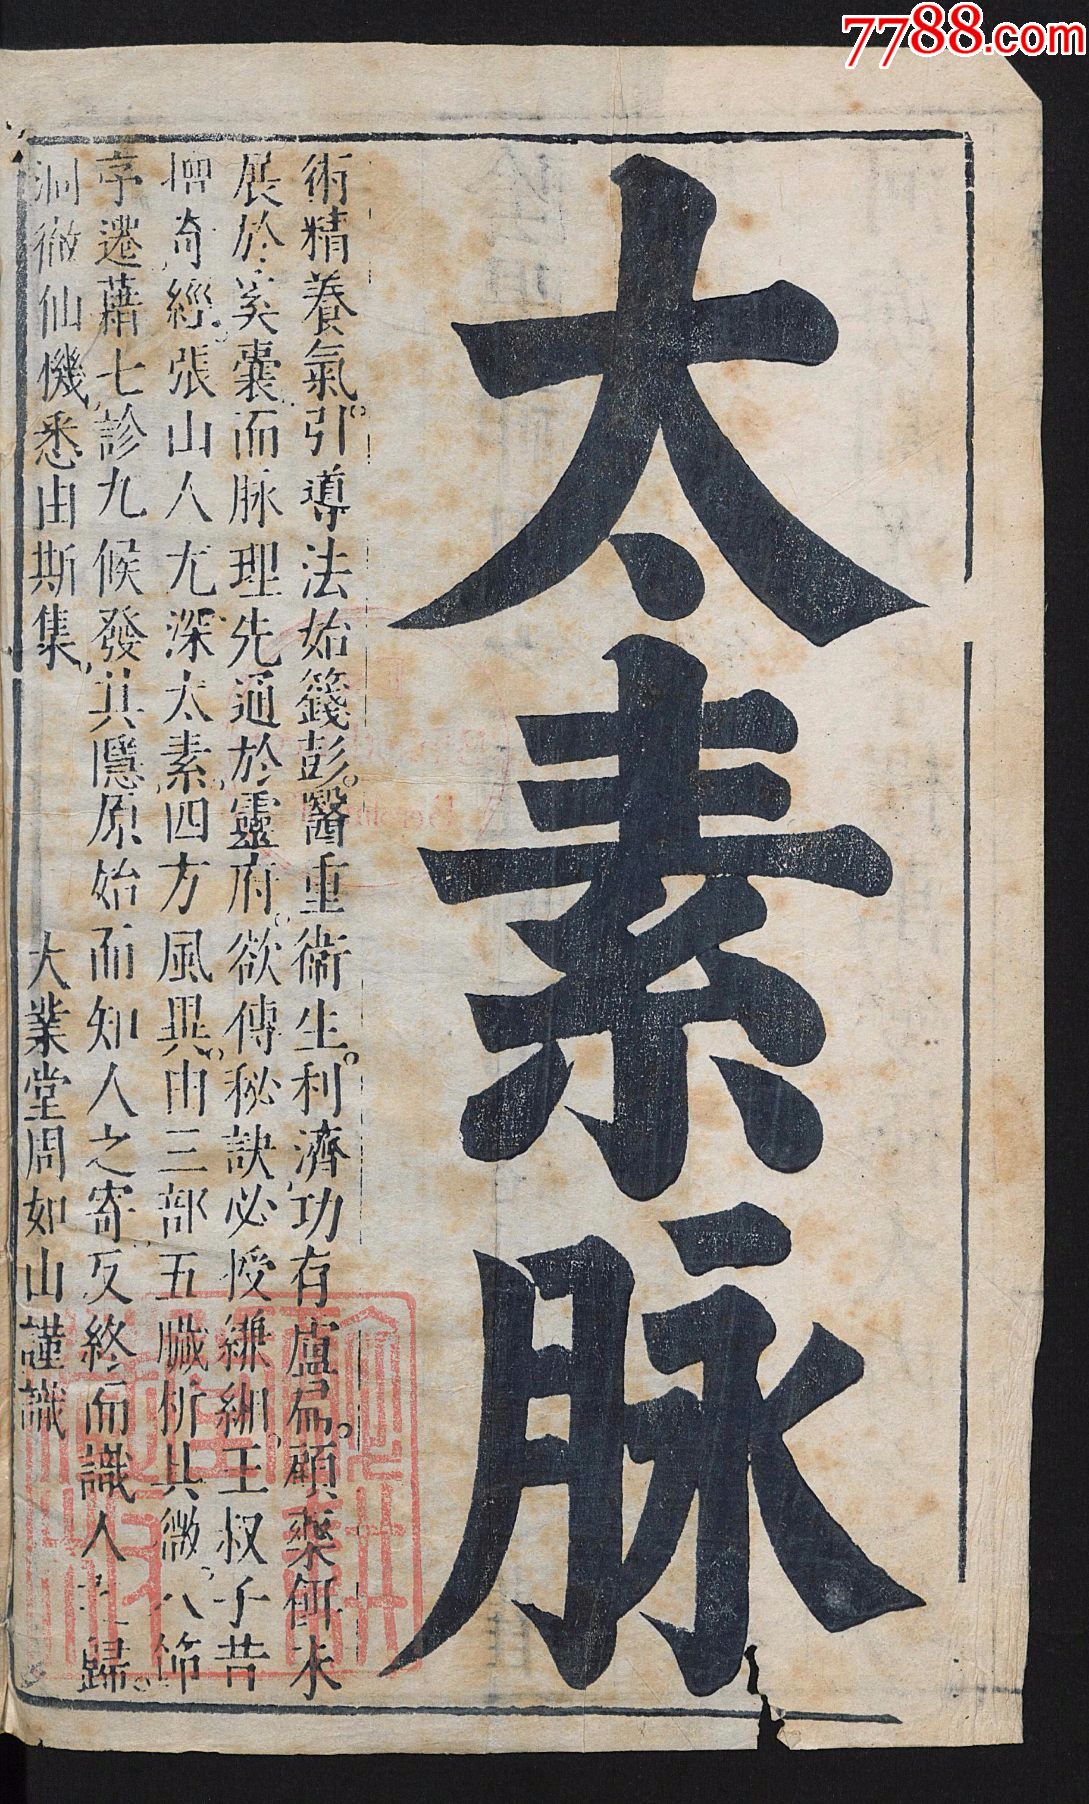 7788.com
太素脉
術精養氣。引導法始籛彭。醫重衛生。利濟功有盧扁。顧藥餌未
展於奚囊。而脉理先通於靈府。欲傳秘訣。必授縑緗。王叔子昔
擅奇經。張山人尤深太素。四方風異。由三部五臟析其微。八節
序遷。藉七診九候發其隱。原始而知人之寄。反終而識人歸。
洞徹仙機。悉由斯集。
大業堂周如山謹識